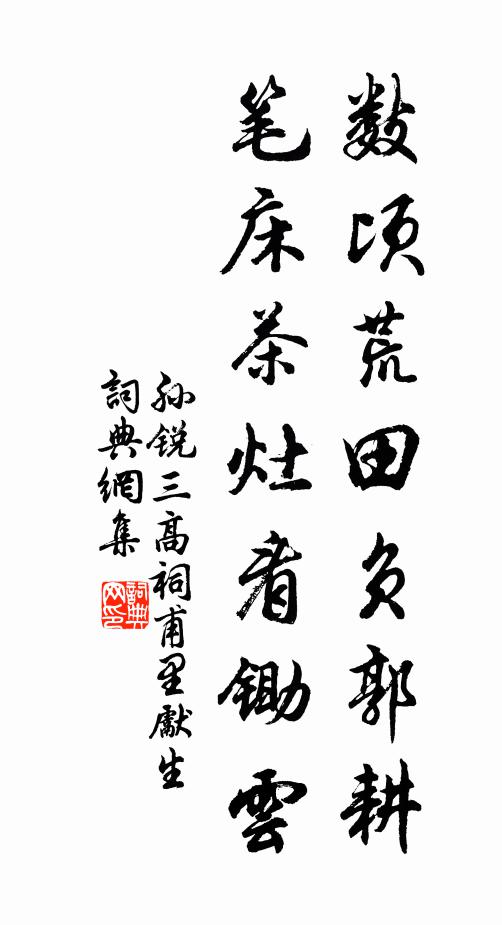 数頃荒田负郭耕
笔床茶灶看锄雲
孙锐三高祠甫里獻生
詞典網集
詞典网印